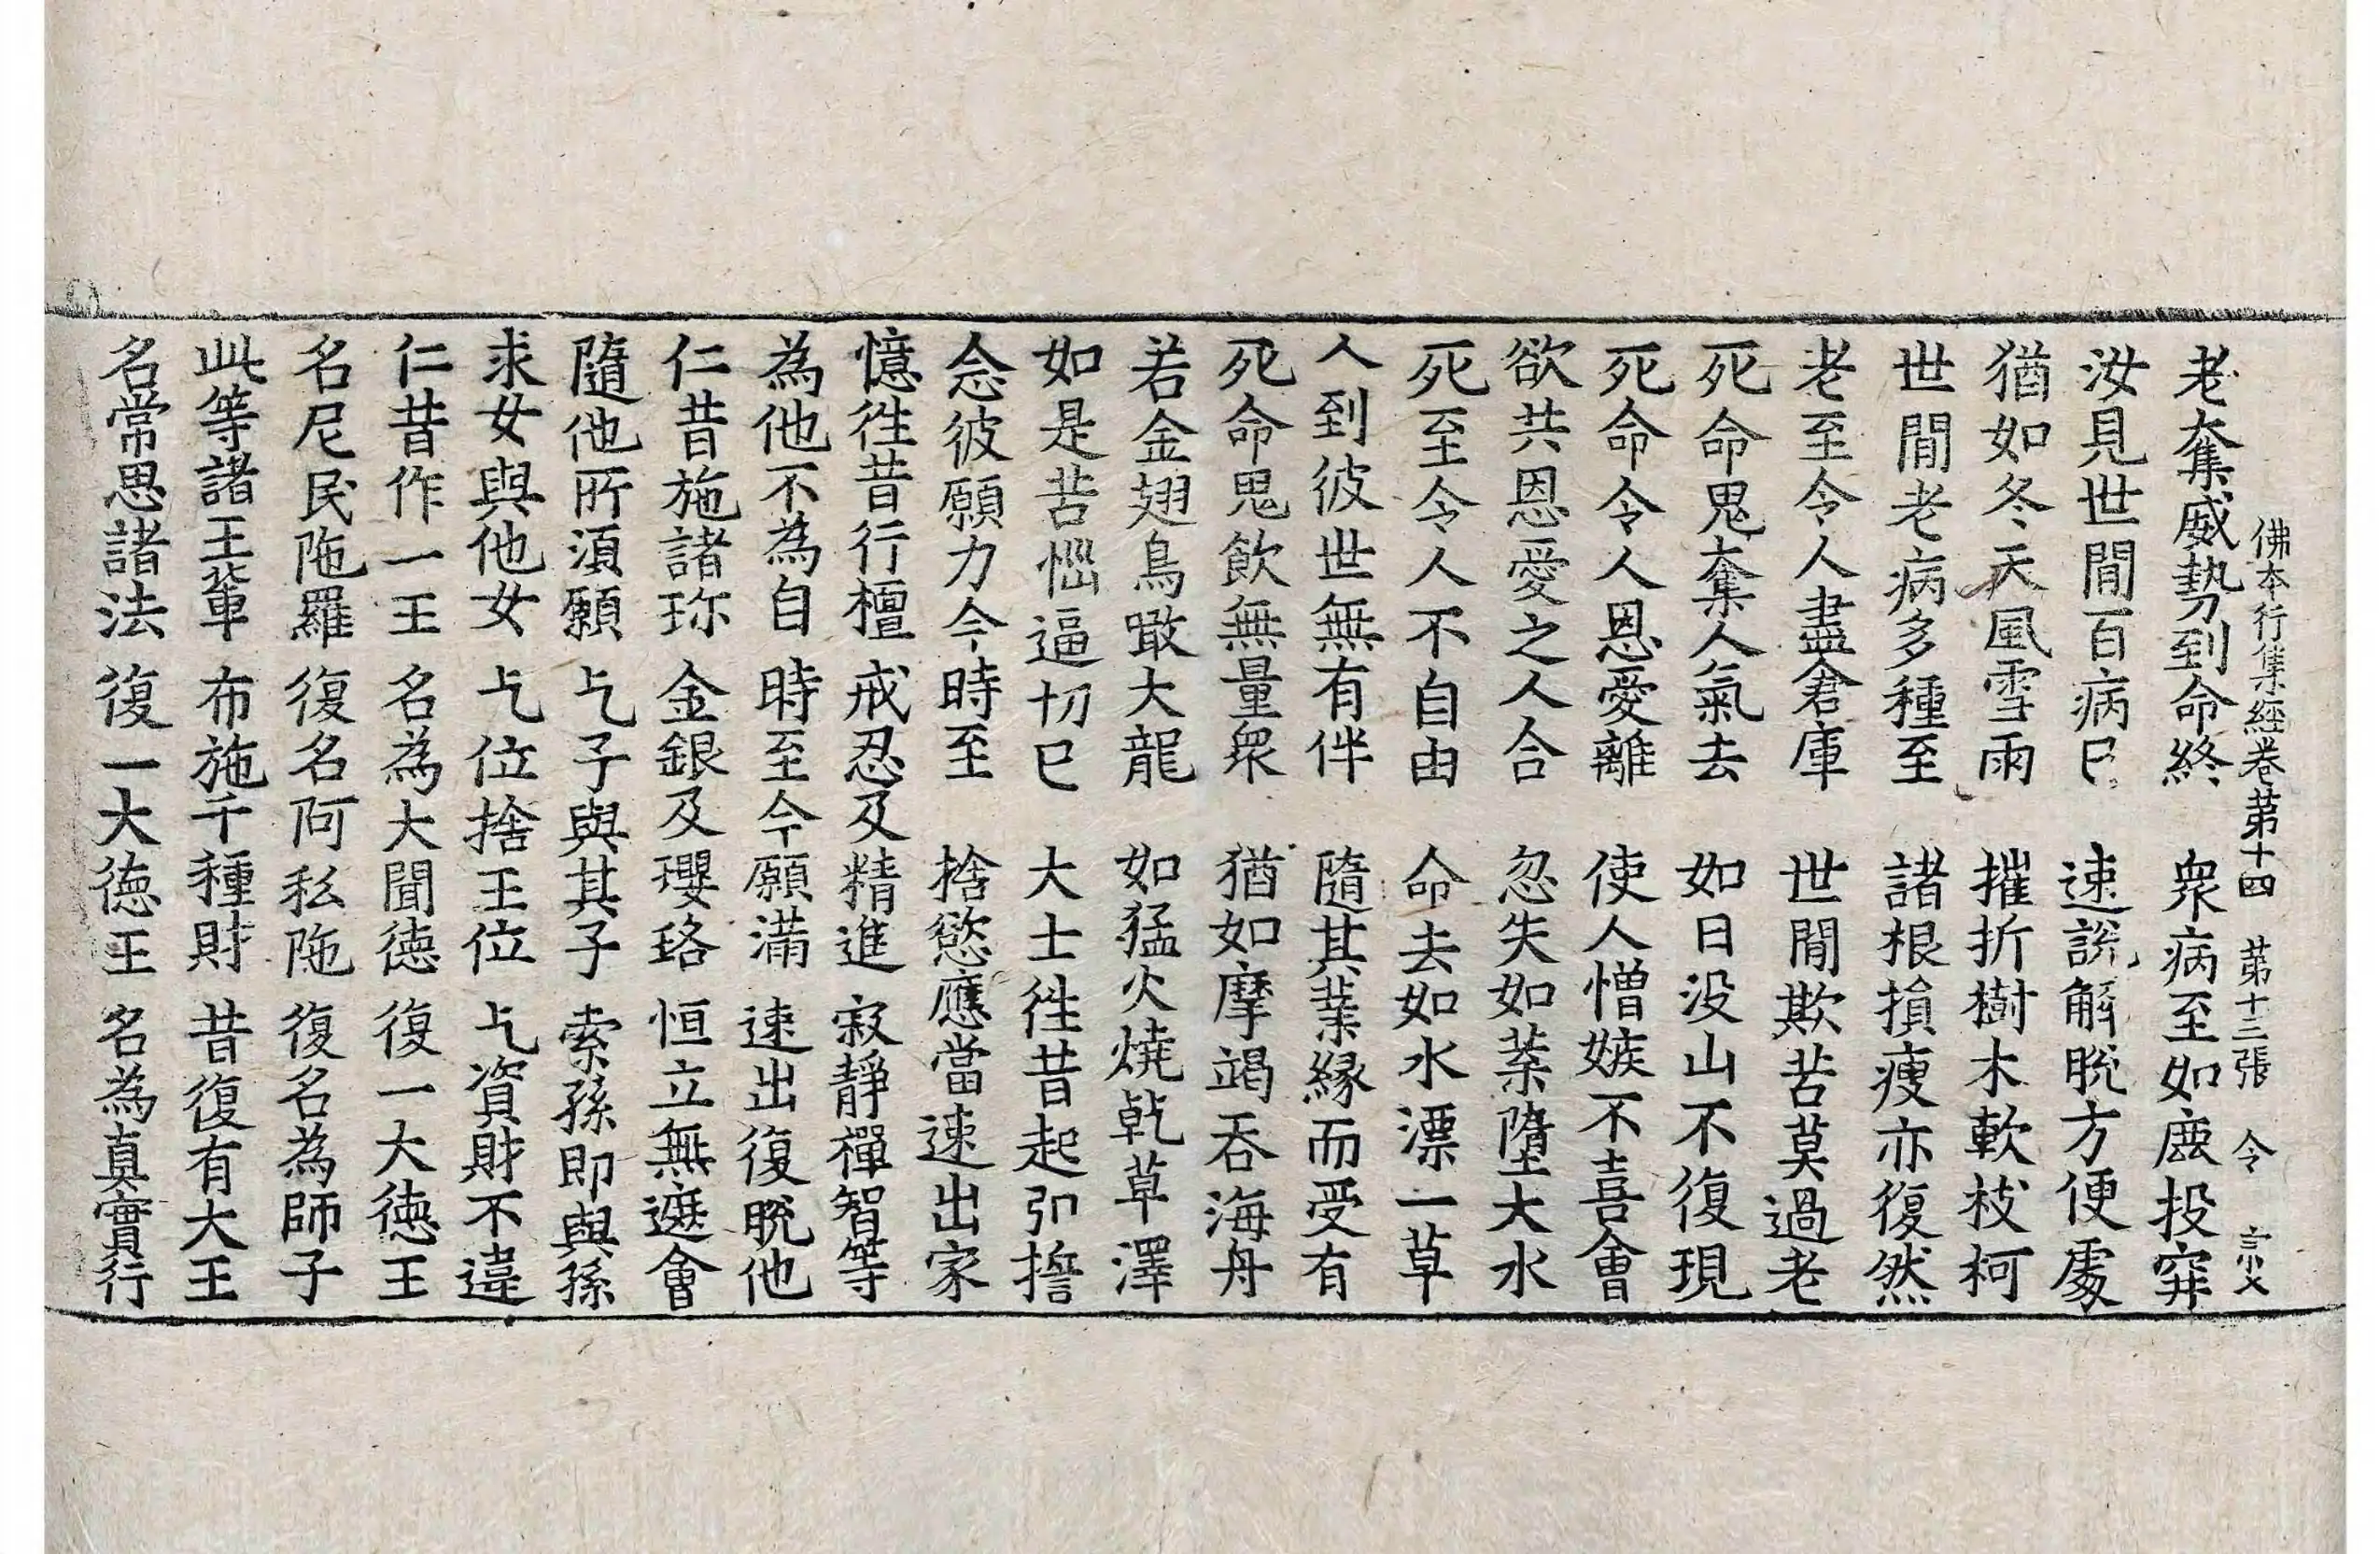 佛本行集經卷第十四 第十三張 令 宗文
老奪威勢到命終 衆病至如鹿投穽
汝見世閒百病已 速說解脫方便處
猶如冬天風雪雨 摧折樹木軟枝柯
世閒老病多種至 諸根損瘦亦復然
老至令人盡倉庫 世閒欺苦莫過老
死命鬼奪人氣去 如日没山不復現
死命令人恩愛離 使人憎嫉不喜會
欲共恩愛之人合 忽失如葉墮大水
死至令人不自由 命去如水漂一草
人到彼世無有伴 隨其業緣而受有
死命鬼飲無量衆 猶如摩竭吞海舟
若金翅鳥噉大龍 如猛火燒乾草澤
如是苦惱逼切已 大士徃昔起弘擔
念彼願力今時至 捨慾應當速出家
憶徃昔行檀 戒忍及精進 寂靜禪智等
為他不為自 時至今願滿 速出復脫他
仁昔施諸珎 金銀及瓔珞 恒立無遮會
隨他所湏願 乞子與其子 索孫即與孫
求女與他女 乞位捨王位 乞資財不違
仁昔作一王 名為大聞徳 復一大徳王
名尼民陁羅 復名阿私陁 復名為師子
此等諸王軰 布施千種財 昔復有大王
名常思諸法 復一大徳王 名為真實行